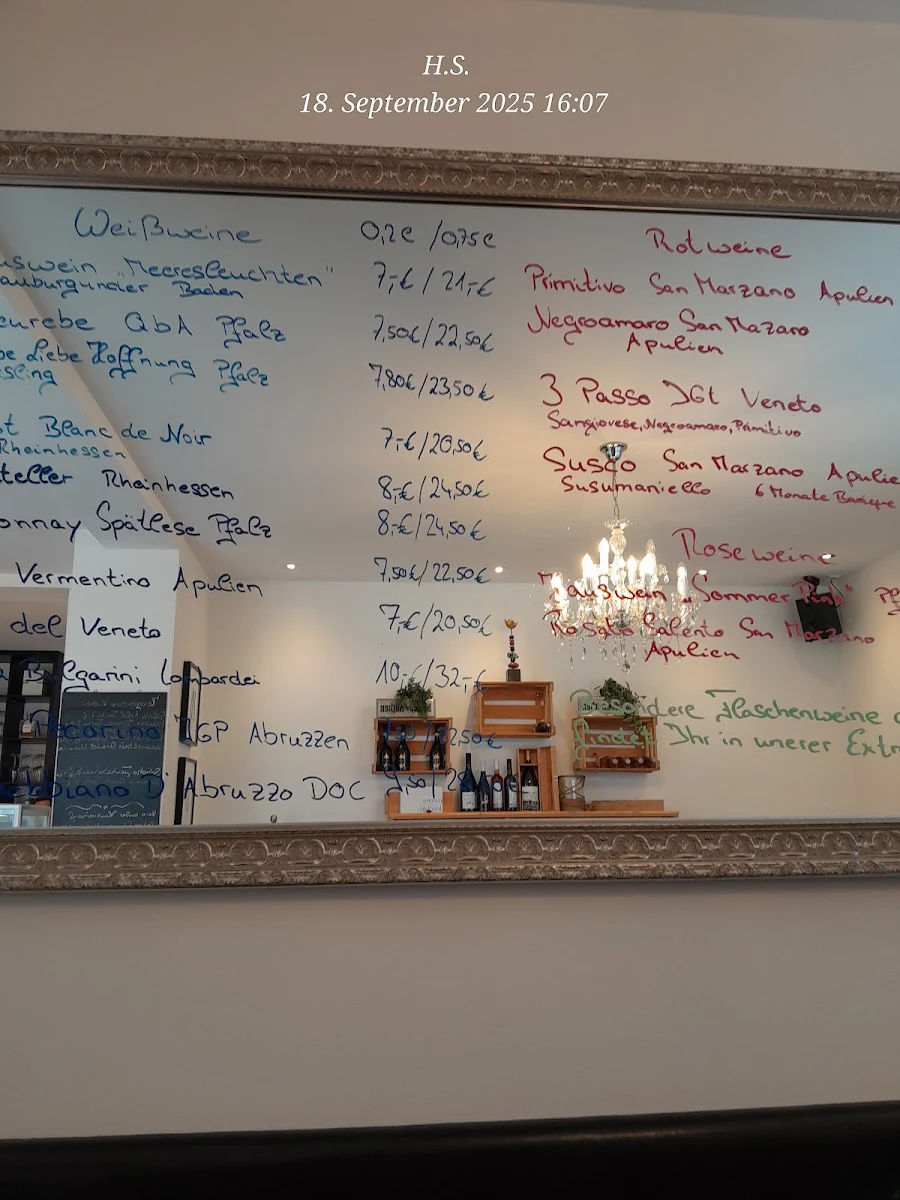 H.S.
18. September 2025 16:07
Weißweine 0,2€ /0,75€
"Meeresleuchten" 7,-€ / 21,-€
Baden
QbA Pfalz 7,50€/22,50€
Liebe Hoffnung Pfalz 7,80€/23,50€
Blanc de Noir 7,-€/20,50€
Rheinhessen
Rheinhessen 8,-€/24,50€
Spätlese Pfalz 8,-€/24,50€
Vermentino Apulien 7,50€/22,50€
del Veneto 7,-€/20,50€
Bulgarini Lombardei 10,-€/32,-€
Pecorino IGP Abruzzen 7,50/22,50€
D'Abruzzo DOC
Rotweine
Primitivo San Marzano Apulien
Negroamaro San Mazaro
Apulien
3 Passo IGt Veneto
Sangiovese, Negroamaro, Primitivo
Susco San Marzano
Susumaniello 6 Monate Barique
Roseweine
Hauswein "Sommer Pink"
Rosato Salento San Marzano
Apulien
Besondere Flaschenweine
findet Ihr in unerer